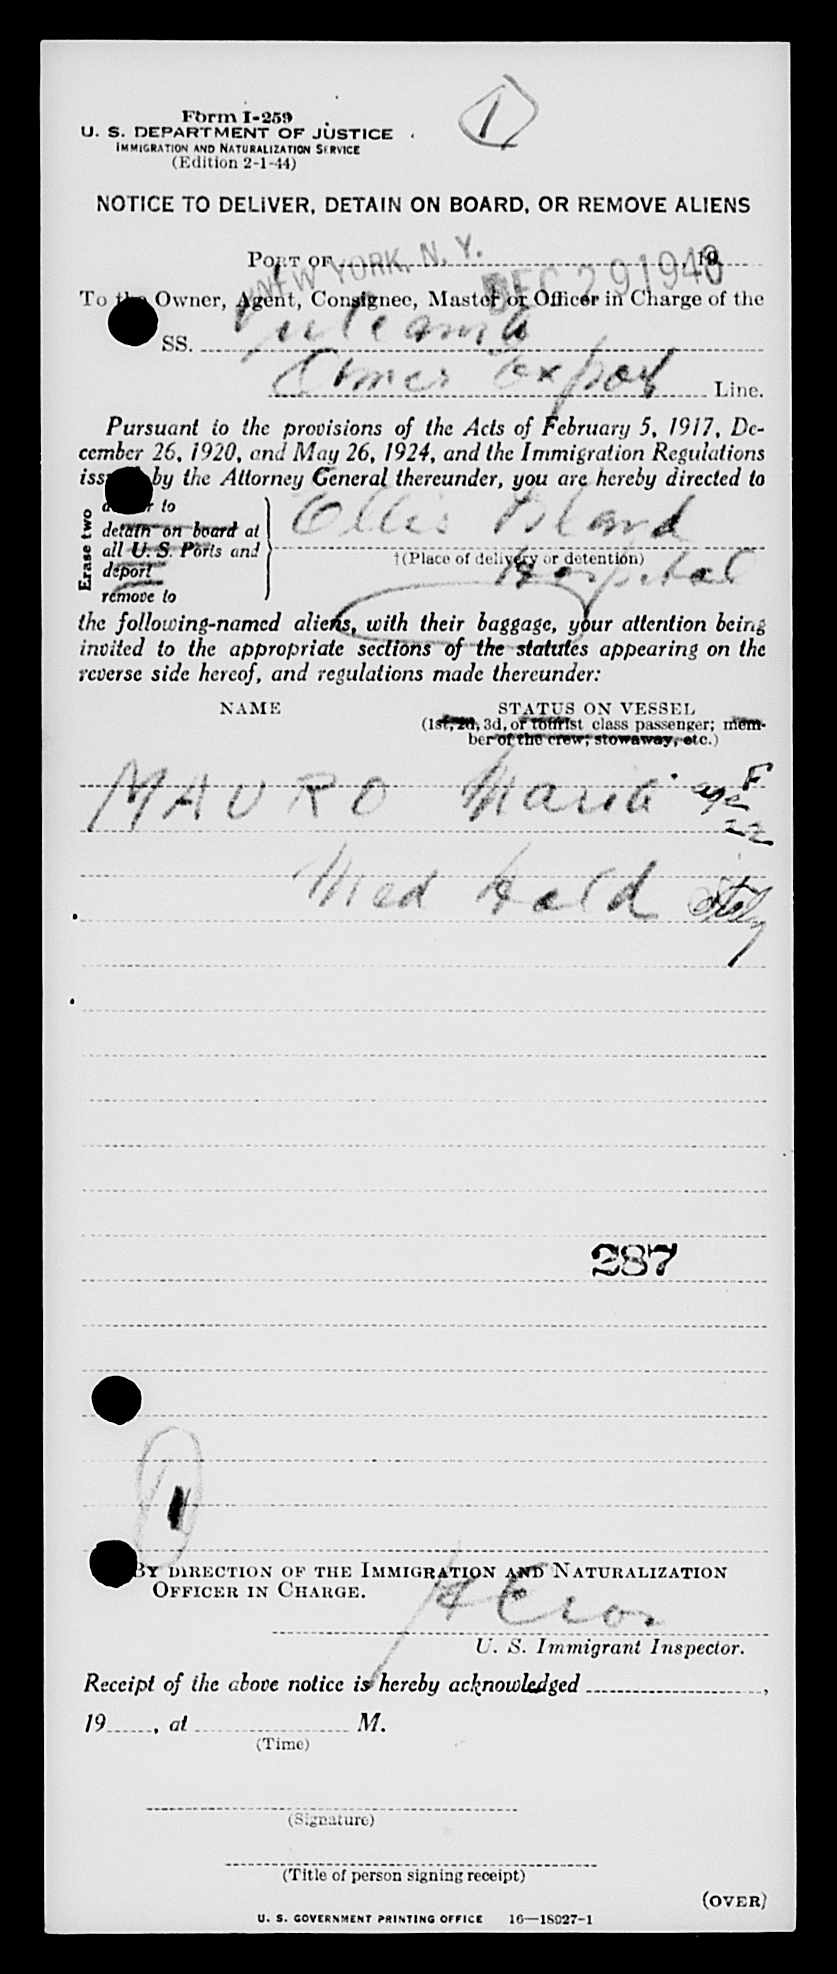 1
Form I-259
U. S. DEPARTMENT OF JUSTICE
IMMIGRATION AND NATURALIZATION SERVICE
(Edition 2-1-44)
NOTICE TO DELIVER, DETAIN ON BOARD, OR REMOVE ALIENS
PORT OF NEW YORK, N. Y. DEC 29 1948 19
To the Owner, Agent, Consignee, Master or Officer in Charge of the
SS. Vulcania
Amer Export Line.
Pursuant to the provisions of the Acts of February 5, 1917, De-
cember 26, 1920, and May 26, 1924, and the Immigration Regulations
issued by the Attorney General thereunder, you are hereby directed to
Erase two
deliver to
detain on board at
all U. S. Ports and
deport
remove to
Ellis Island
†(Place of delivery or detention)
Hospital
the following-named aliens, with their baggage, your attention being
invited to the appropriate sections of the statutes appearing on the
reverse side hereof, and regulations made thereunder:
NAME STATUS ON VESSEL
(1st, 2d, 3d, or tourist class passenger; mem-
ber of the crew, stowaway, etc.)
MAURO Maria F
age
22
Med Hold Italy
287
1
BY DIRECTION OF THE IMMIGRATION AND NATURALIZATION
OFFICER IN CHARGE.
U. S. Immigrant Inspector.
Receipt of the above notice is hereby acknowledged ,
19 , at M.
(Time)
(Signature)
(Title of person signing receipt)
(OVER)
U. S. GOVERNMENT PRINTING OFFICE 16—18027-1